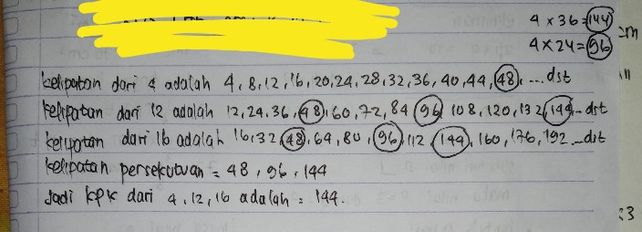 4 x 36 = 144
4 x 24 = 96
kelipatan dari 4 adalah 4, 8, 12, 16, 20, 24, 28, 32, 36, 40, 44, 48, ... dst
kelipatan dari 12 adalah 12, 24, 36, 48, 60, 72, 84 96 108, 120, 132, 144 ... dst
kelipatan dari 16 adalah 16, 32, 48, 64, 80, 96, 112, 144, 160, 176, 192 ... dst
kelipatan persekutuan = 48, 96, 144
Jadi KPK dari 4, 12, 16 adalah = 144.